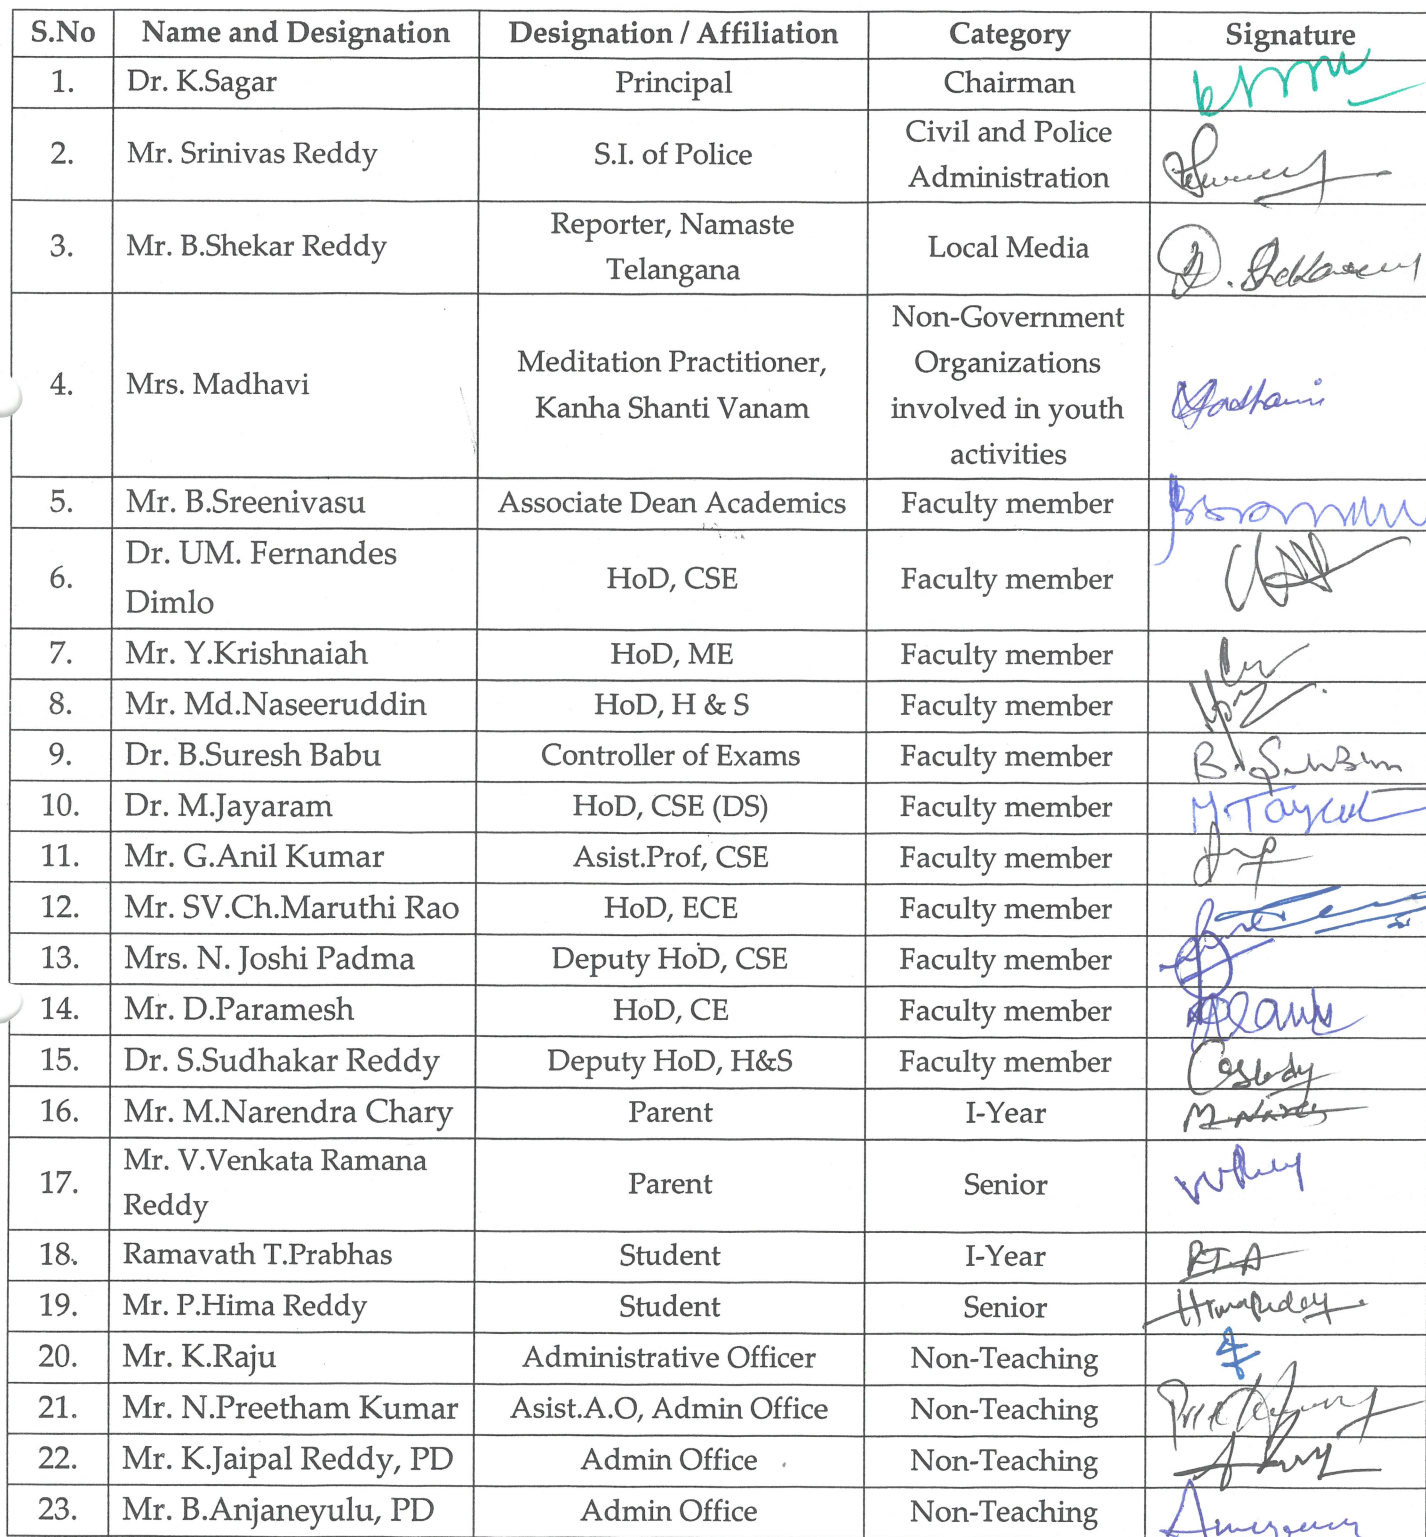 S.No Name and Designation Designation / Affiliation Category Signature
1. Dr. K.Sagar Principal Chairman
2. Mr. Srinivas Reddy S.I. of Police Civil and Police
Administration
3. Mr. B.Shekar Reddy Reporter, Namaste
Telangana Local Media
4. Mrs. Madhavi Meditation Practitioner,
Kanha Shanti Vanam Non-Government
Organizations
involved in youth
activities
5. Mr. B.Sreenivasu Associate Dean Academics Faculty member
6. Dr. UM. Fernandes
Dimlo HoD, CSE Faculty member
7. Mr. Y.Krishnaiah HoD, ME Faculty member
8. Mr. Md.Naseeruddin HoD, H & S Faculty member
9. Dr. B.Suresh Babu Controller of Exams Faculty member
10. Dr. M.Jayaram HoD, CSE (DS) Faculty member
11. Mr. G.Anil Kumar Asist.Prof, CSE Faculty member
12. Mr. SV.Ch.Maruthi Rao HoD, ECE Faculty member
13. Mrs. N. Joshi Padma Deputy HoD, CSE Faculty member
14. Mr. D.Paramesh HoD, CE Faculty member
15. Dr. S.Sudhakar Reddy Deputy HoD, H&S Faculty member
16. Mr. M.Narendra Chary Parent I-Year
17. Mr. V.Venkata Ramana
Reddy Parent Senior
18. Ramavath T.Prabhas Student I-Year
19. Mr. P.Hima Reddy Student Senior
20. Mr. K.Raju Administrative Officer Non-Teaching
21. Mr. N.Preetham Kumar Asist.A.O, Admin Office Non-Teaching
22. Mr. K.Jaipal Reddy, PD Admin Office Non-Teaching
23. Mr. B.Anjaneyulu, PD Admin Office Non-Teaching